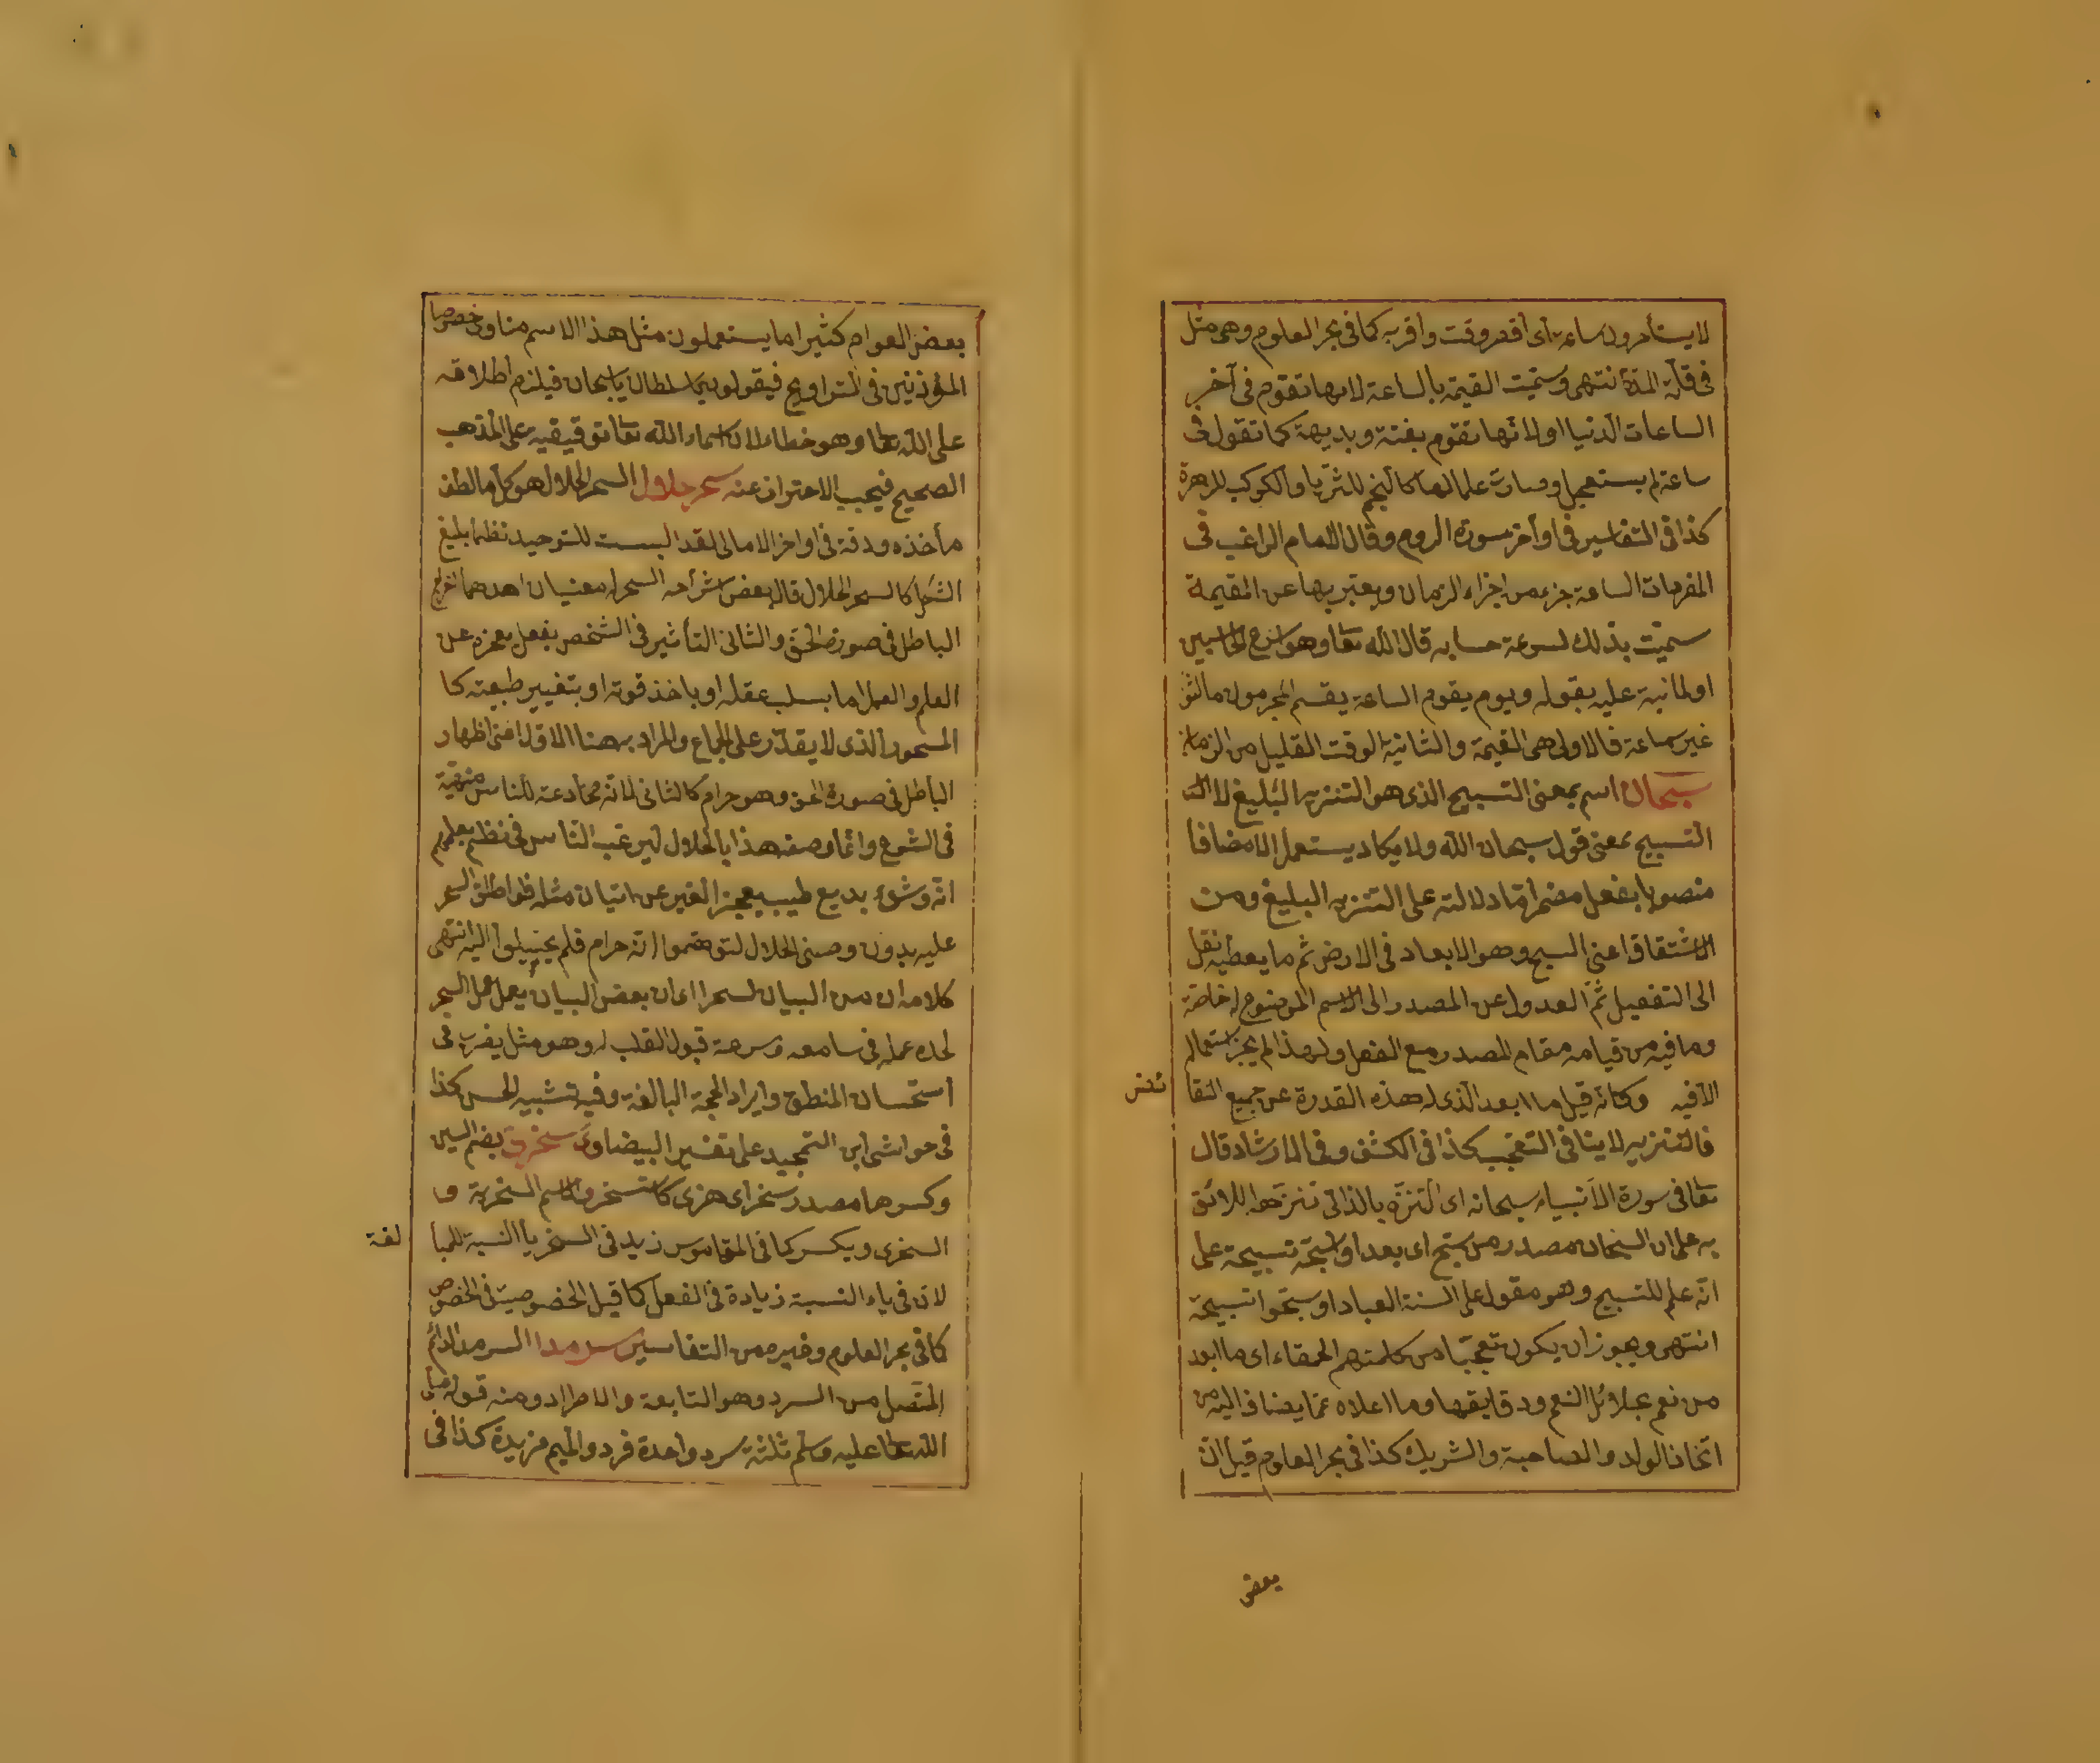 لا يستأخرون ساعة أى أقصر وقت وأقربه كما فى بحر العلوم وهى مثل
فى قلة المدة انتهى وسميت القيمة بالساعة لانها تقوم فى آخر
الساعات الدنيا او لانها تقوم بغتة وبديهة كما تقول فى
ساعة لم يستعجل وصارت علما لها كالنجم للثريا والكوكب للزهرة
كذا فى التفاسير فى اوآخر سورة الروم وقال الامام الراغب فى
المفردات الساعة جزء من اجزاء الزمان ويعتبر بها عن القيمة
سميت بذلك لسرعة حسابه قال الله تعا وهو اسرع الحاسبين
اولما نبه عليه بقوله ويوم يقوم الساعة يقسم المجرمون ما لبثوا
غير ساعة فالاولى هى القيمة والثانية الوقت القليل من الزمان
سبحان اسم بمعنى التسبيح الذى هو التنزيه البليغ لا
التسبيح بمعنى قول سبحان الله ولا يكاد يستعمل الا مضافا
منصوبا بفعل مضمر اما دلالته على التنزيه البليغ ومن
الاشتقاق اعنى السبح وهو الابعاد فى الارض ثم ما يعطيه نقل
الى التفعيل ثم العدول عن المصدر الى الاسم الموضوع له خاصة
وما فيه من قيامه مقام المصدر مع الفعل ولهذا لم يجز استعماله
الا فيه وكانه قيل ما ابعد الذى له هذه القدرة عن جميع النقا
ئض
فالتنزيه لا ينافى التعجب كذا فى الكشف وفى الارشاد قال
تعا فى سورة الأنبياء سبحانه اى التنزه بالذات تنزهوا اللائق
به على ان السبحان مصدر من سبح اى بعد او اسبحه تسبيحة على
انه علم للتسبيح وهو مقول على السنة العباد او سبحوا تسبيحة
انتهى ويجوز ان يكون تعجبا من كلمتهم الحمقاء اى ما ابعد
من نعم بجلائل النعم ودقايقها وما اعلاه عما يضاف اليه من
اتخاذ الولد والصاحبة والشريك كذا فى بحر العلوم قيل ان
بعض
بعض العوام كثيرا ما يستعملون مثل هذا الاسم مناوى خصوصا
المؤذنين فى التراويح فيقولون يا سلطان يا سبحان فيلزم أطلاقه
على الله تعا وهو خطاء لان اسماء الله تعا توقيفية على المذهب
الصحيح فيجب الاحتراز عنه سحر حلال السحر الحلال هو كل ما لطف
مأخذه ودقة فى اواخر الامالى لقد البست للتوحيد نظما بليغ
الشكل كالسحر الحلال قال بعض شراحه السحر له معنيان احدهما اخراج
الباطل فى صورة الحق والثانى التأثير فى الشخص بفعل يعجزه عن
العلم والعمل اما بسلب عقله او باخذ قوته او بتغيير طبيعته كا
المسحور الذى لا يقدر على الجماع والمراد به هنا الاول اعنى اظهار
الباطل فى صورة الحق وهو حرام كالثانى لانه مخادعة للناس منهية
فى الشرع وانما وصف هذا بالحلال ليرغب الناس فى نظم
انه وشىء بديع طيب يعجز الغير عن اتيان مثله فلو اطلق السحر
عليه بدون وصف الحلال لتوهموا انه حرام فلم يميلوا اليه انتهى
كلامه ان من البيان لسحرا اى ان بعض البيان يعمل عمل السحر
لحدة عمله فى سامعه وسرعة قبول القلب له وهو مثل يضرب فى
استحسان المنطق وايراد الحجة البالغة وفيه تشبيه الحسن كذا
فى حواشى ابن التمجيد على تفسير البيضاوى سخرى بضم السين
وكسرها مصدر سخر اى هزى كاستسخر والاسم السخرية و
السخرى ويكسر كما فى القاموس زيد فى السخر يا النسبة للمبا
لغة
لان فى ياء النسبة زيادة فى الفعل كما قيل الخصوصية فى الخصوص
كما فى بحر العلوم وغيره من التفاسير سرمدا السرمد الدائم
المتصل من السرد وهو التتابعة والاطراد ومنه قوله صلى
الله تعا عليه وسلم ثلثة سرد واحدة فرد والميم مزيدة كذا فى